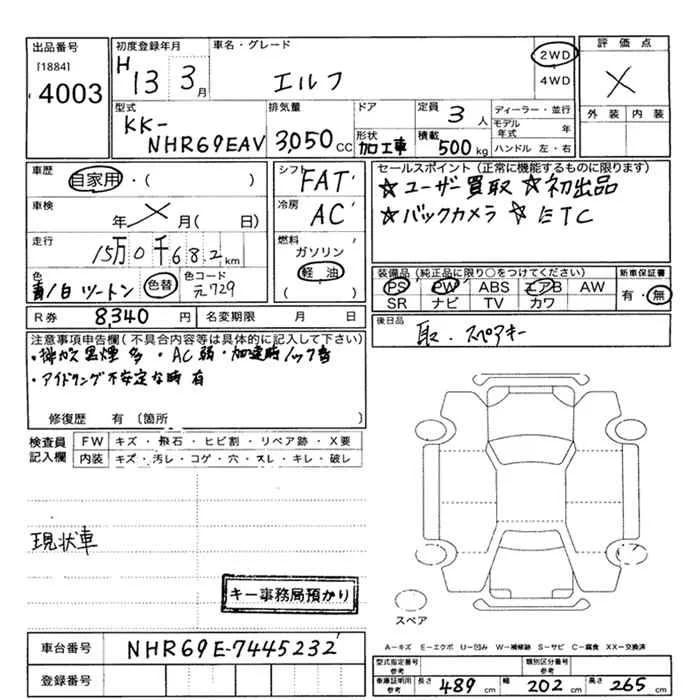 出品番号
[1884]
4003
初度登録年月
H 13 3月
車名・グレード
エルフ
2WD
4WD
評価点
X
外装 内装
型式
KK-
NHR69EAV
排気量
3,050 CC
ドア
形状 加工車
定員 3人
積載 500kg
ディーラー・並行
モデル年式 年
ハンドル 左・右
車歴
自家用・( )
車検
年 X 月( 日)
走行
15万0千682km
色
青/白ツートン 色替
色コード
元729
シフト
FAT
冷房
AC
燃料
ガソリン
軽油
( )
セールスポイント(正常に機能するものに限ります)
☆ユーザー買取 ☆初出品
☆バックカメラ ☆ETC
装備品(純正品に限り○をつけてください)
PS PW ABS エアB AW
SR ナビ TV カワ
新車保証書
有・無
R券 8,340円
名変期限 月 日
後日品
取、スペアキー
注意事項申告欄(不具合内容等は具体的に記入して下さい)
・排ガス黒煙多 ・AC弱・加速時ノック音
・アイドリング不安定な時有
修復歴 有〔箇所
検査員
記入欄
FW キズ・飛石・ヒビ割・リペア跡・X要
内装 キズ・汚レ・コゲ・穴・スレ・キレ・破レ
現状車
キー事務局預かり
スペア
車台番号 NHR69E-7445232
登録番号
A-キズ E-エクボ U-凹み W-補修跡 S-サビ C-腐食 XX-交換済
型式指定番号 参考
類別区分番号 参考
車庫証明用 参考 長さ 489cm 幅 202cm 高さ 265cm